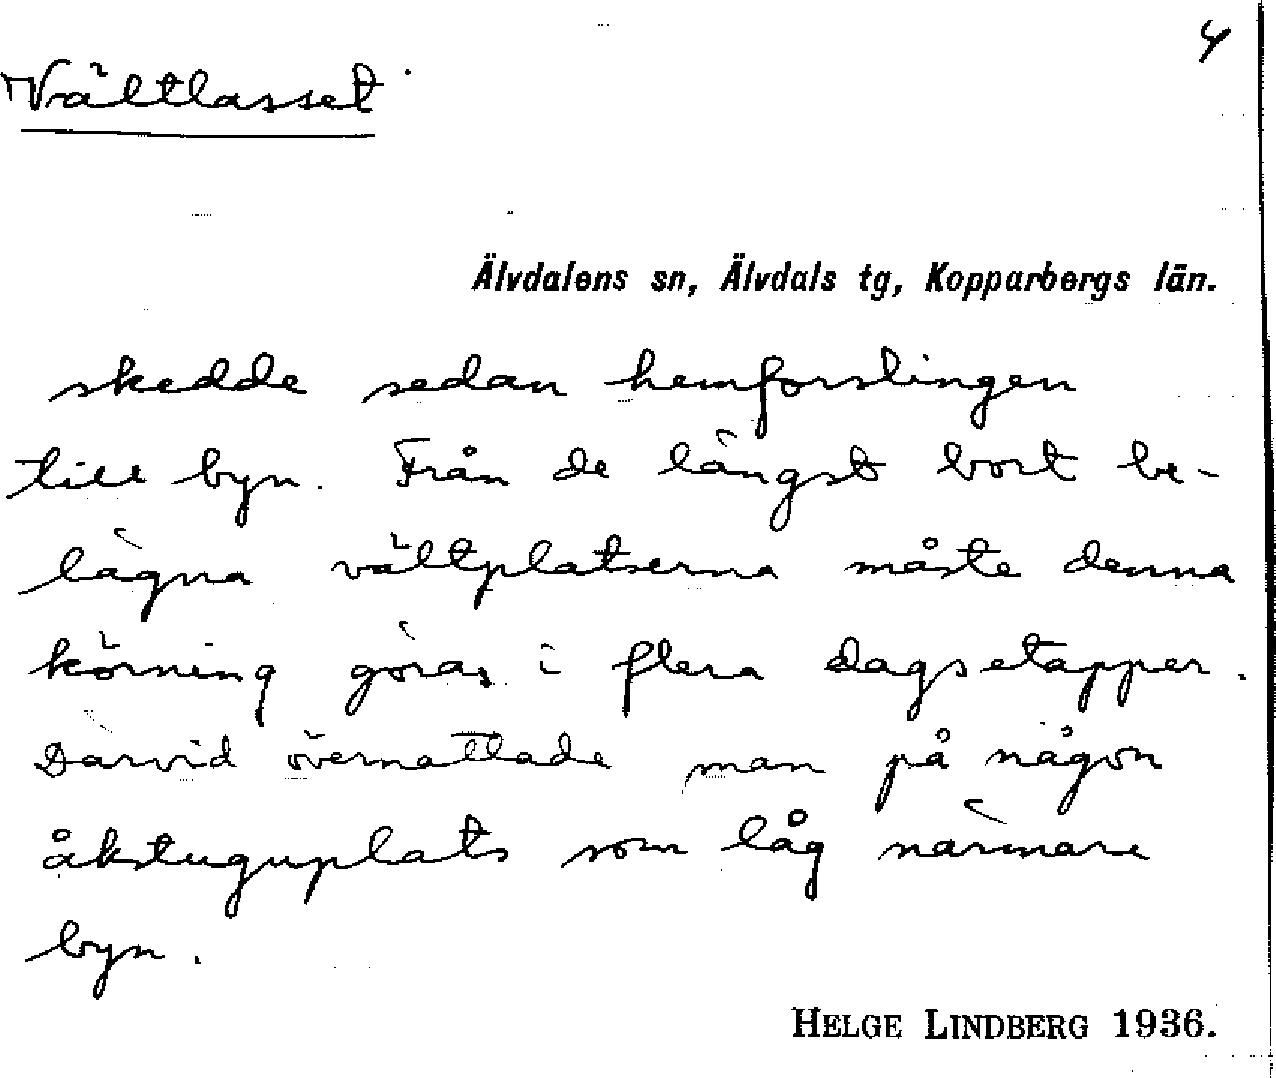 4
Vältlasset
Älvdalens sn, Älvdals tg, Kopparbergs län.
skedde sedan hemforslingen
till byn. Från de längst bort be-
lägna vältplatserna måste denna
körning göras i flera dagsetapper.
Därvid övernattade man på någon
åkstuguplats som låg närmare
byn.
HELGE LINDBERG 1936.